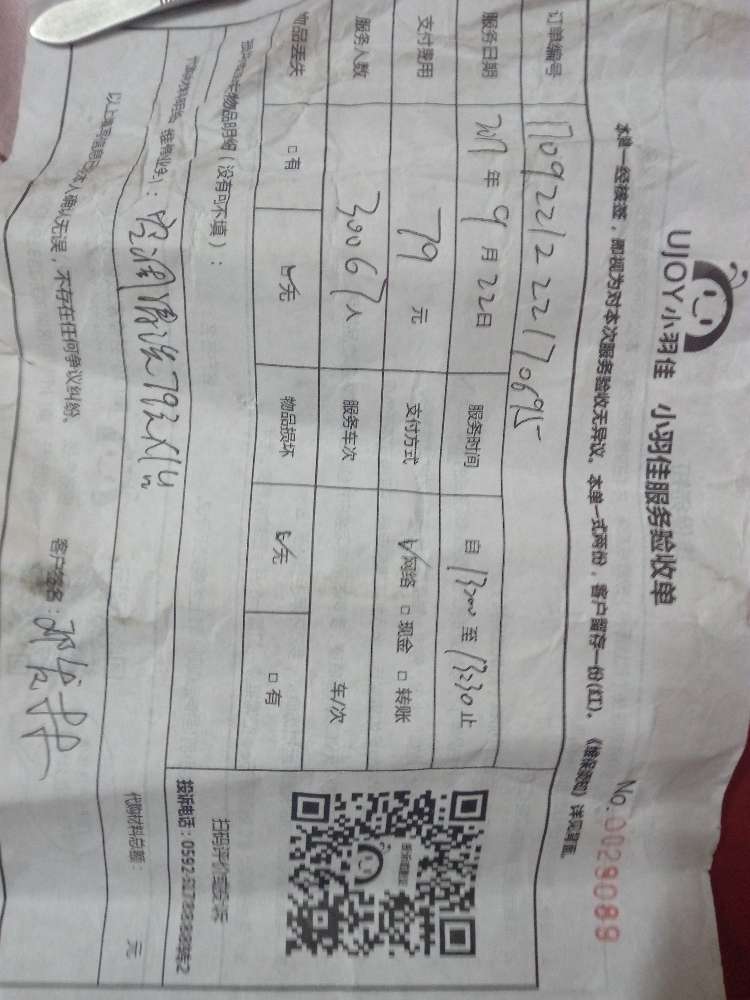 UJOY小羽佳 小羽佳服务验收单
No. 0029089
本单一经核签，即视为对本次服务验收无异议。本单一式两份，客户留存一份(红)。《维保须知》详见背面。
订单编号 1709221222170695
服务日期 2017年9月22日 服务时间 自 13:00 至 13:30 止
支付费用 79 元 支付方式 ☑网络 □现金 □转账
服务人数 30067 人 服务车次 车/次
物品丢失 □有 ☑无 物品损坏 ☑无 □有
物品明细（没有可不填）：
空调清洗79元
以上填写信息已本人确认无误，不存在任何争议纠纷。
客户签名：
代购材料总额： 元
扫码评价或投诉
投诉电话：0592-